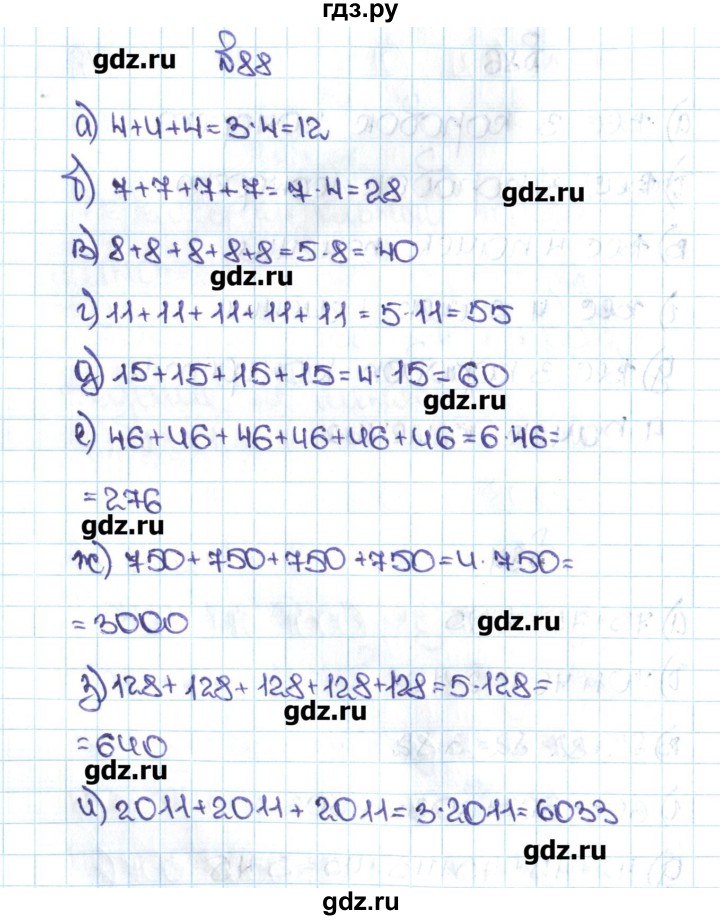 гдз.ру
gdz.ru №88
а) 4+4+4=3·4=12
б) 7+7+7+7=7·4=28 gdz.ru
в) 8+8+8+8+8=5·8=40
gdz.ru
г) 11+11+11+11+11=5·11=55
д) 15+15+15+15=4·15=60
gdz.ru
е) 46+46+46+46+46+46=6·46=
=276
gdz.ru
ж) 750+750+750+750=4·750=
=3000 gdz.ru
з) 128+128+128+128+128=5·128=
gdz.ru
=640
gdz.ru
и) 2011+2011+2011=3·2011=6033
gdz.ru
gdz.ru